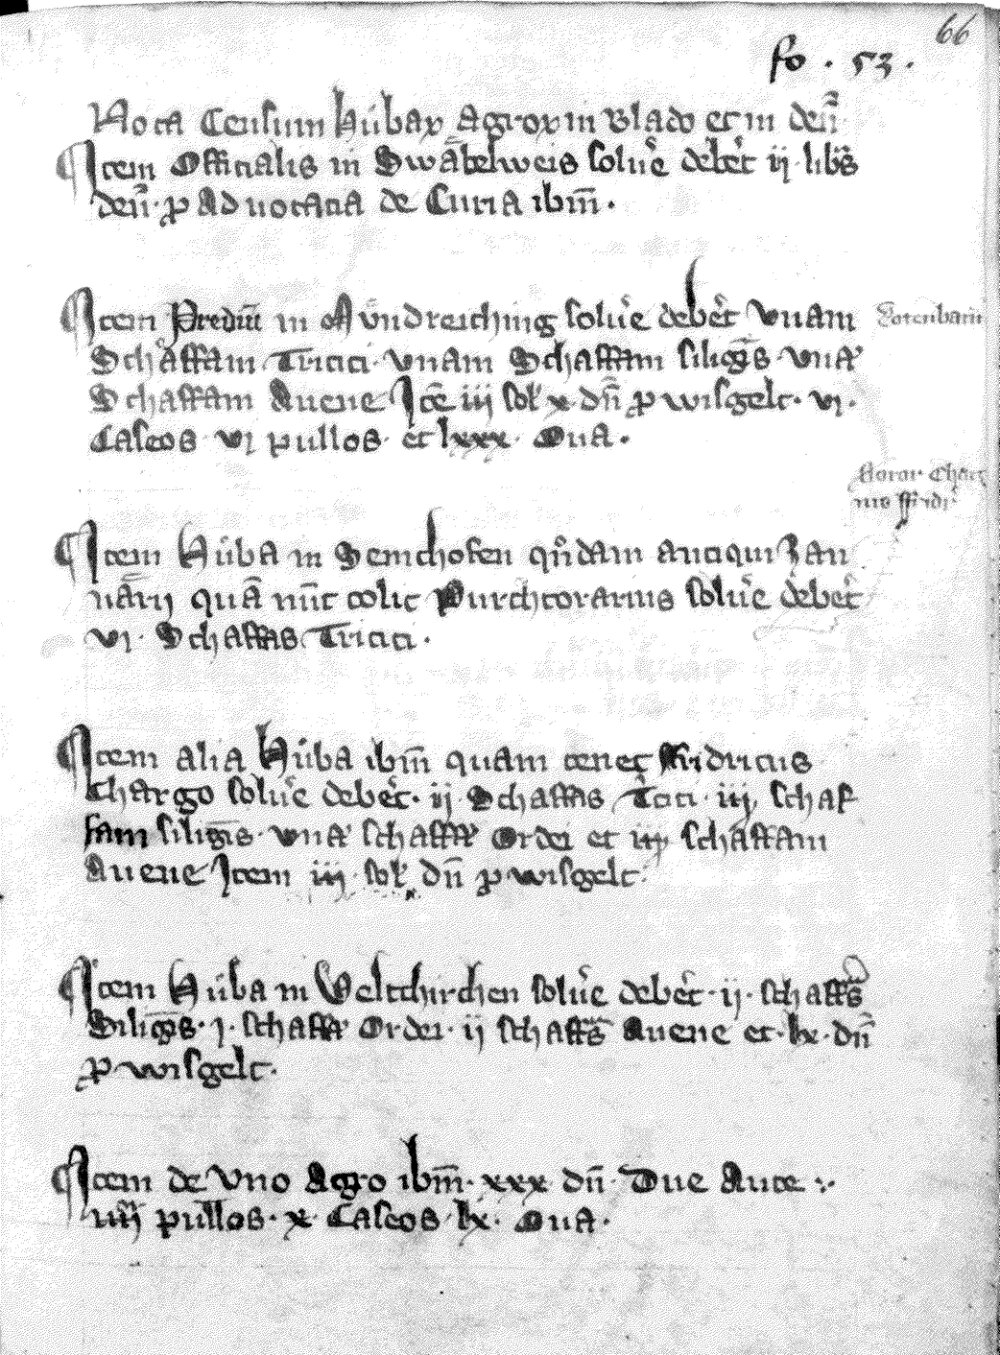 66
fo . 53 .
Nota Censum Hůbaꝝ Agroꝝ in Blado et in deñ
Item Officialis in Swäbelweis soluͤe debet ij libs̃
deñ ꝓ Aduocatia de Curia ibm̃.
Item Prediũ in Mundreiching soluͤe debet Vnam
Schaffam Tritici vnam Schaffam siligĩs vnã
Schaffam Auene Itẽ iij sol x dñ ꝓ wisgelt. vi.
Caseos vi pullos et lxxx Oua.
Item Hůba in Semchofen qñdam antiqui Zan
närij quã nũc colit Purchtorarius soluͤe debet
vi. Schaffas Tritici.
Item alia Hůba ibm̃ quam tenet ffridricus
Chargo soluͤe debet. ij Schaffas Tͥtici iij schaf
fam siligĩs. vnã schaffã Ordei et iij schaffam
Auene Item iij sol dñ ꝓ wisgelt.
Item Hůba in Weltchirchen soluͤe debet. ij. schaffas̃
Siligĩs. j. schaffã Ordei. ij schaffas̃ Auene et. lx. dñ
ꝓ wisgelt.
Item de Vno Agro ibm̃. xxx dñ. Due Auce
iiij pullos. x Caseos lx. Oua.